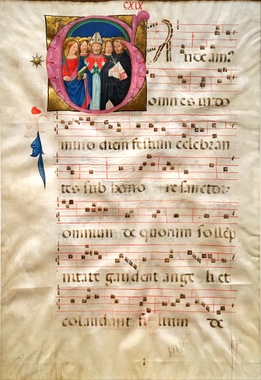 CXIX
GAudeam⁹
omnes in do
mino diem festum celebran
tes sub hono re sanctoru
omnium de quorum sollēp
nitate gaudent ange li et
colaudant fi lium de